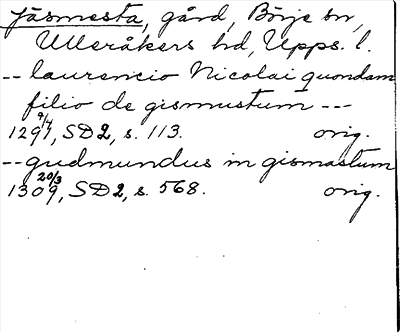 Jäsmesta, gård, Börje sn,
Ulleråkers hd, Upps. l.
-- laurencio Nicolai quondam
filio de gismustum ---
9/4
1297, SD2, s. 113. orig.
-- gudmundus in gismastum
20/3
1309, SD2, s. 568. orig.